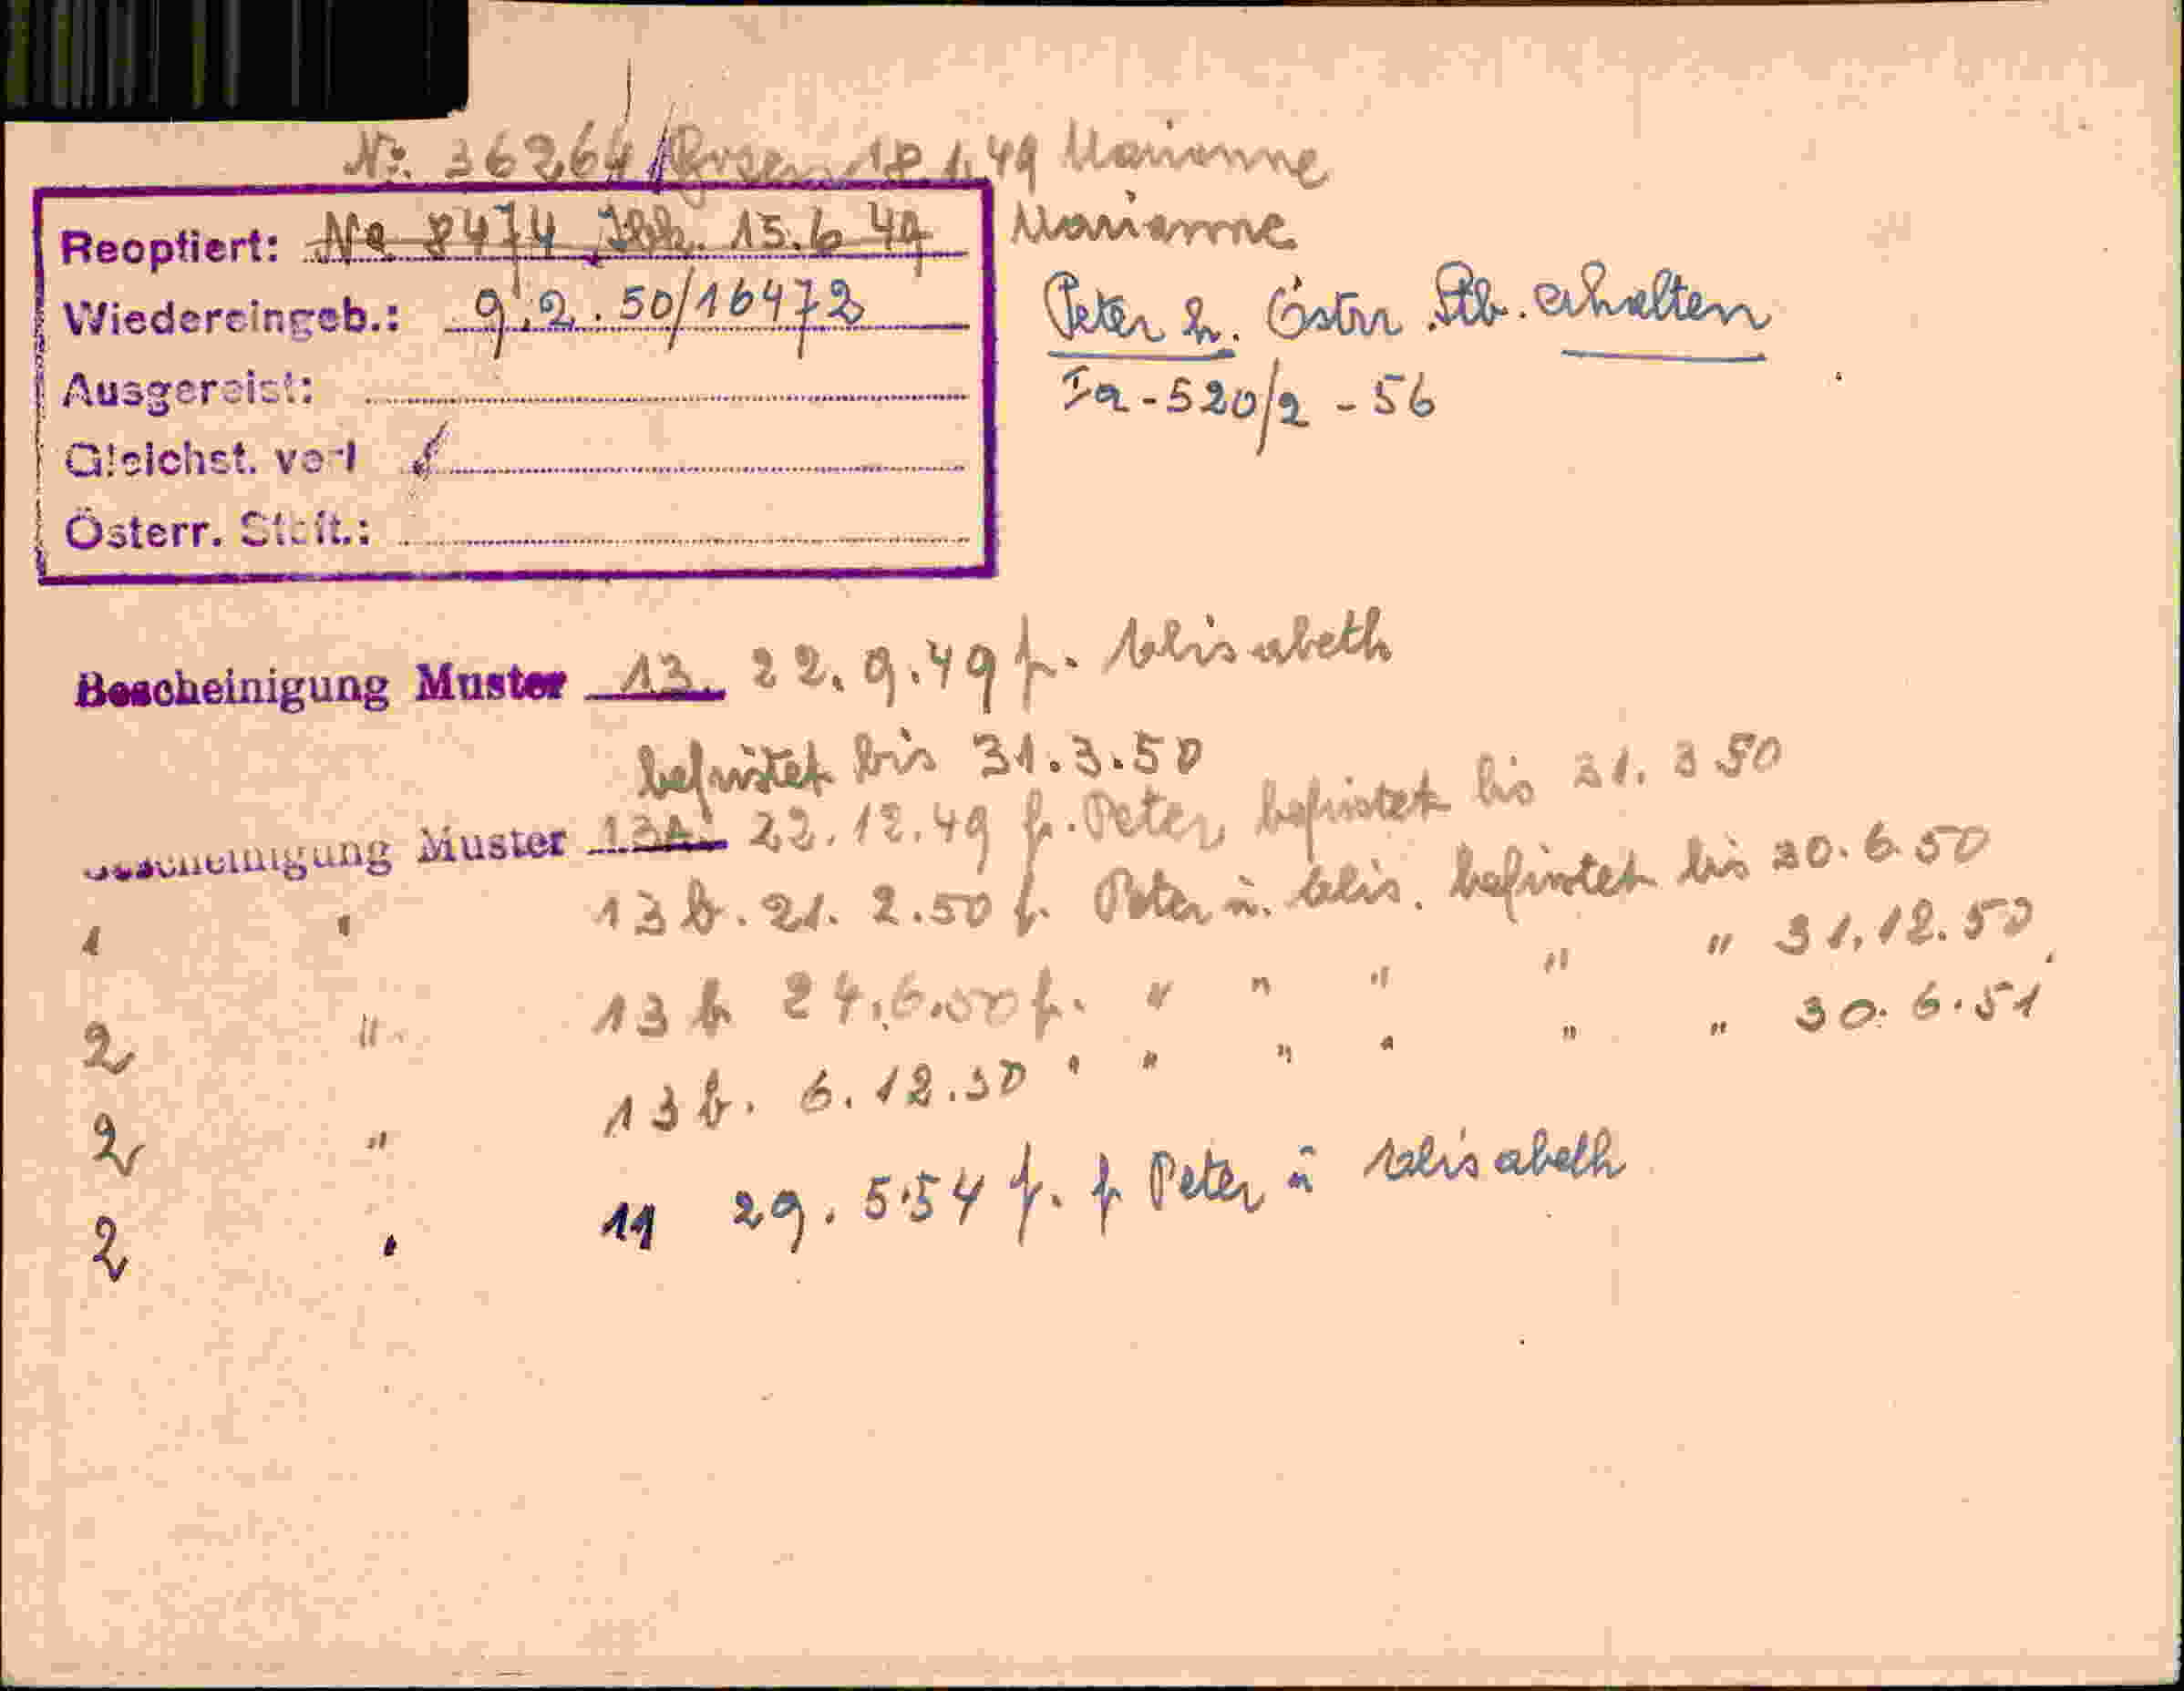 Nr. 36264/ 18.1.49 Marianne
Reoptiert: No 8474 Jbk. 15.6.49 Marianne
Wiedereingeb.: 9.2.50/16472
Peter u. Östrr Stb. erhalten
Ausgereist:
Ia-520/2-56
Gleichst. verl
Österr. Stbft.:
Bescheinigung Muster 13. 22.9.49 f. Elisabeth
befristet bis 31.3.50
Bescheinigung Muster 13A. 22.12.49 f. Peter, befristet bis 31.3 50
1 " 13 b. 21. 2.50 f. Peter u. Elis. befristet bis 30.6.50
2 " 13 b 24.6.50 f. " " " " " 31.12.50
2 " 13 b. 6.12.50 " " " " " " 30.6.51
2 " 11 29.5.54 f. f Peter u Elisabeth